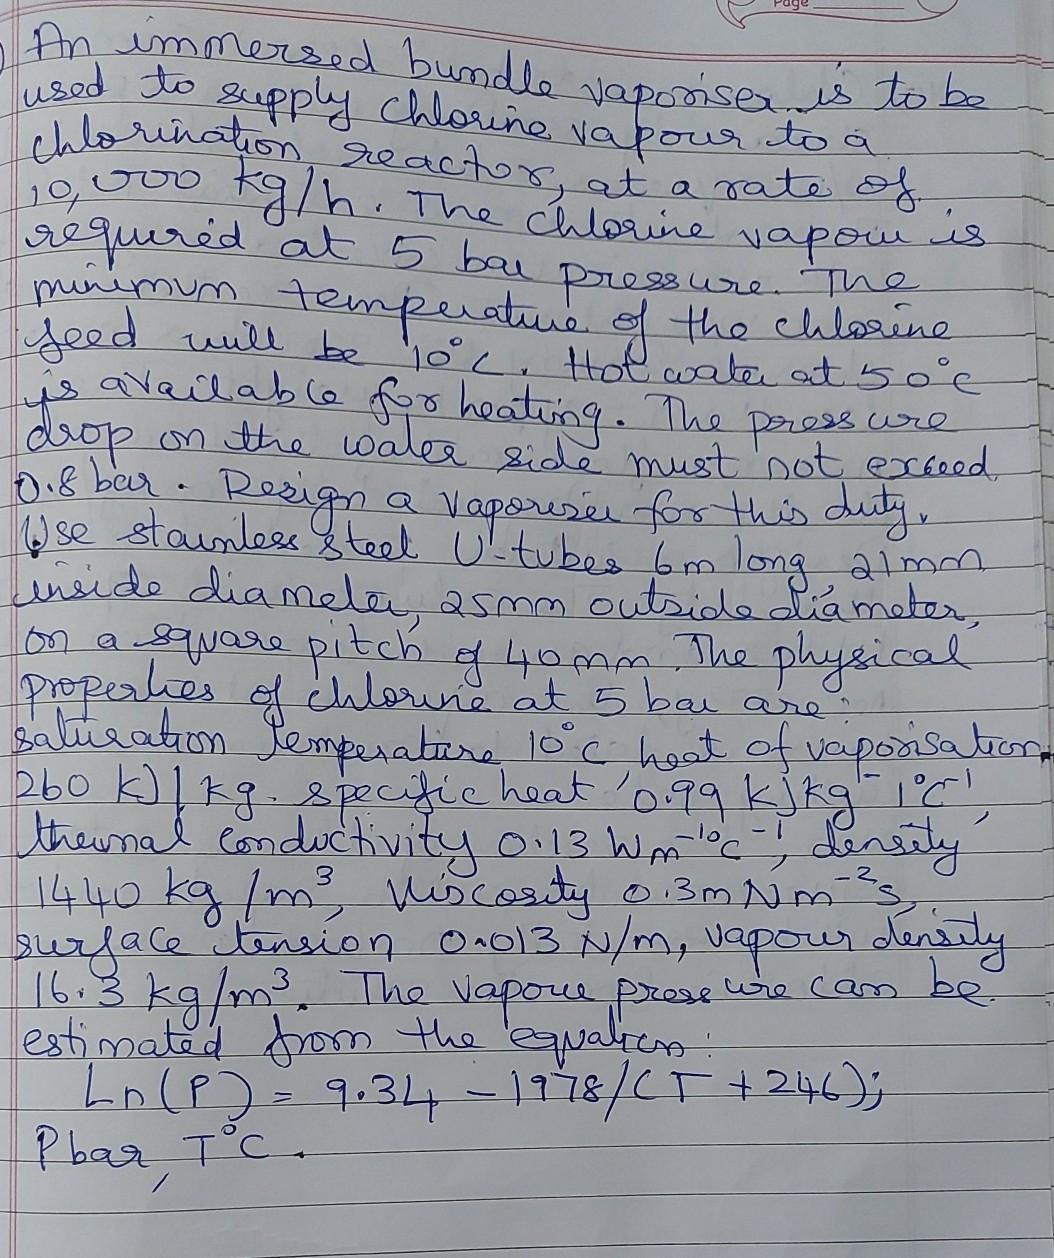 Page
An immersed bundle vaporiser is to be
used to supply chlorine vapour to a
chlorination reactor, at a rate of
10,000 kg/h. The chlorine vapour is
required at 5 bar pressure. The
minimum temperature of the chlorine
feed will be 10°C. Hot water at 50°C
is available for heating. The pressure
drop on the water side must not exceed
0.8 bar. Design a vaporiser for this duty.
Use stainless steel U-tubes 6m long, 21mm
inside diameter, 25mm outside diameter,
on a square pitch of 40mm. The physical
properties of chlorine at 5 bar are:
saturation temperature 10°C heat of vaporisation
260 kJ/kg. specific heat 0.99 kJkg⁻¹°C⁻¹,
thermal conductivity 0.13 Wm⁻¹°C⁻¹, density
1440 kg/m³, viscosity 0.3mNm⁻²s,
surface tension 0.013 N/m, vapour density
16.3 kg/m³. The vapour pressure can be
estimated from the equation:
Ln(P) = 9.34 - 1978/(T + 246);
P bar, T°C.